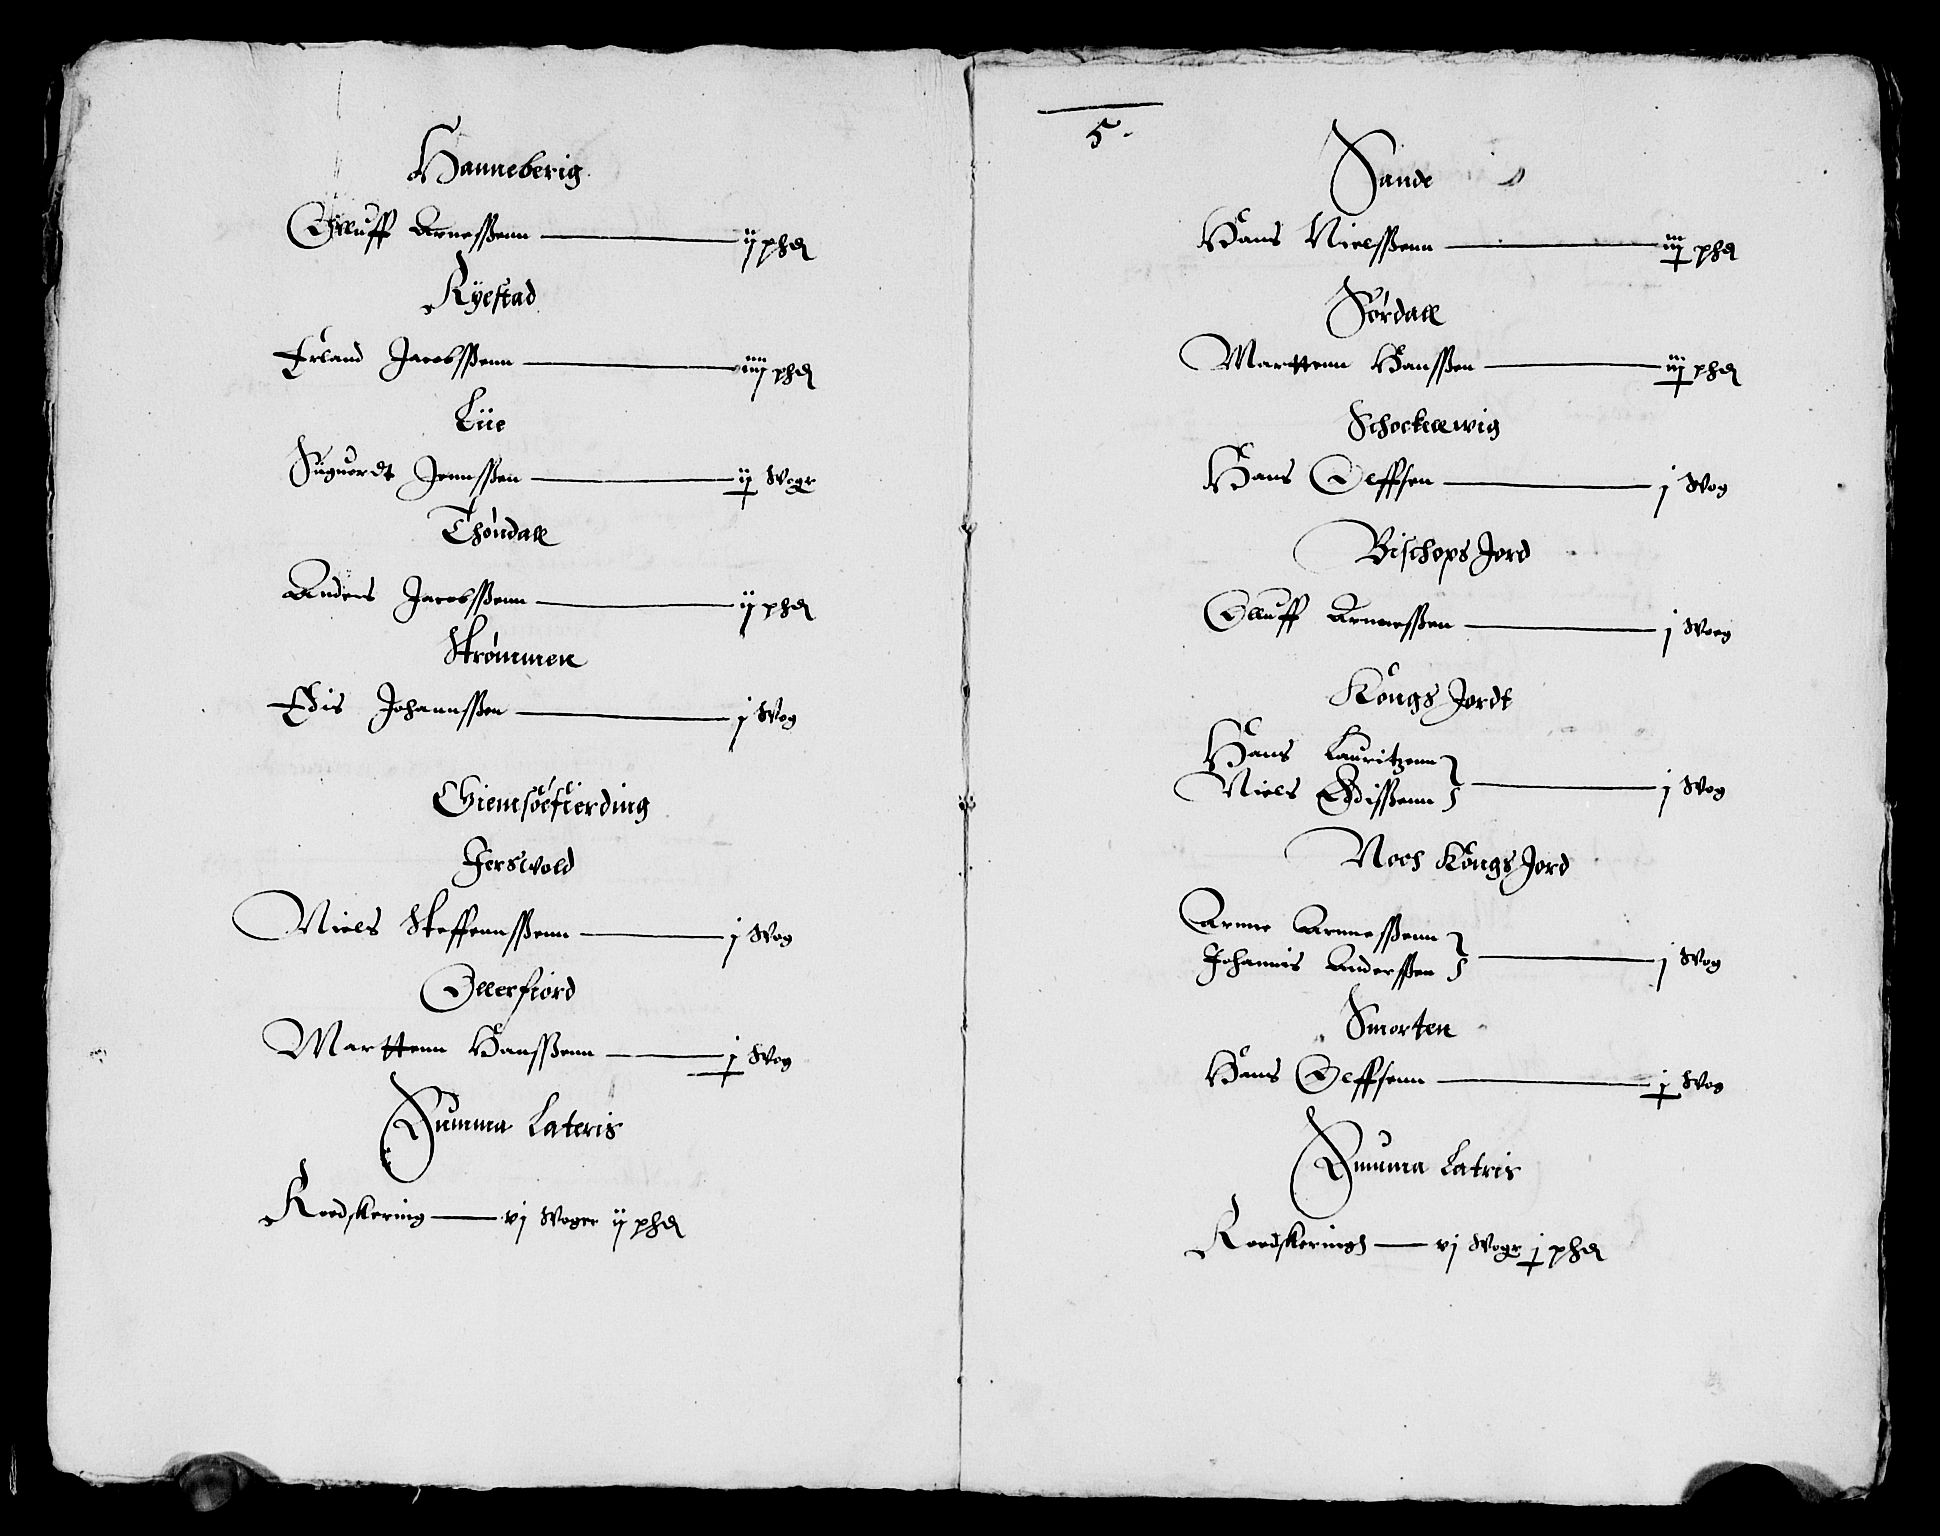 Hanneberig
Olluff Arnesßenn — ij phd
Kÿestad
Erland Jacobsßenn — iiij phd
Lüe
Siguordt Jennsßen — ij Wogr
Thöndall
Anders Jacobsßenn — ij phd
Strömmen
Edis Johannsßen — j Wog
Giemsöefierding
Jerswold
Niels Steffennsßenn — j Wog
Ollerfiord
Marttenn Hansßenn — j Wog
Summa Lateris
Roedskering — vj Woger ij phd
5.
Sande
Hans Nielsßenn — iij phd
Sördall
Marttenn Hansßen — iij phd
Schockelwig
Hans Olffsen — j Wog
Bischops Jord
Olluff Arnnesßen — j Woeg
Köngs Jordt
Hans Lauritzenn
Niels Edisßenn — j Wog
Noch Köngs Jord
Arnne Arnnesßenn
Johannis Andersßen — j Wog
Smorten
Hans Olffsenn — j Wog
Summa Latris
Roedskeringh — vj Wogr j phd